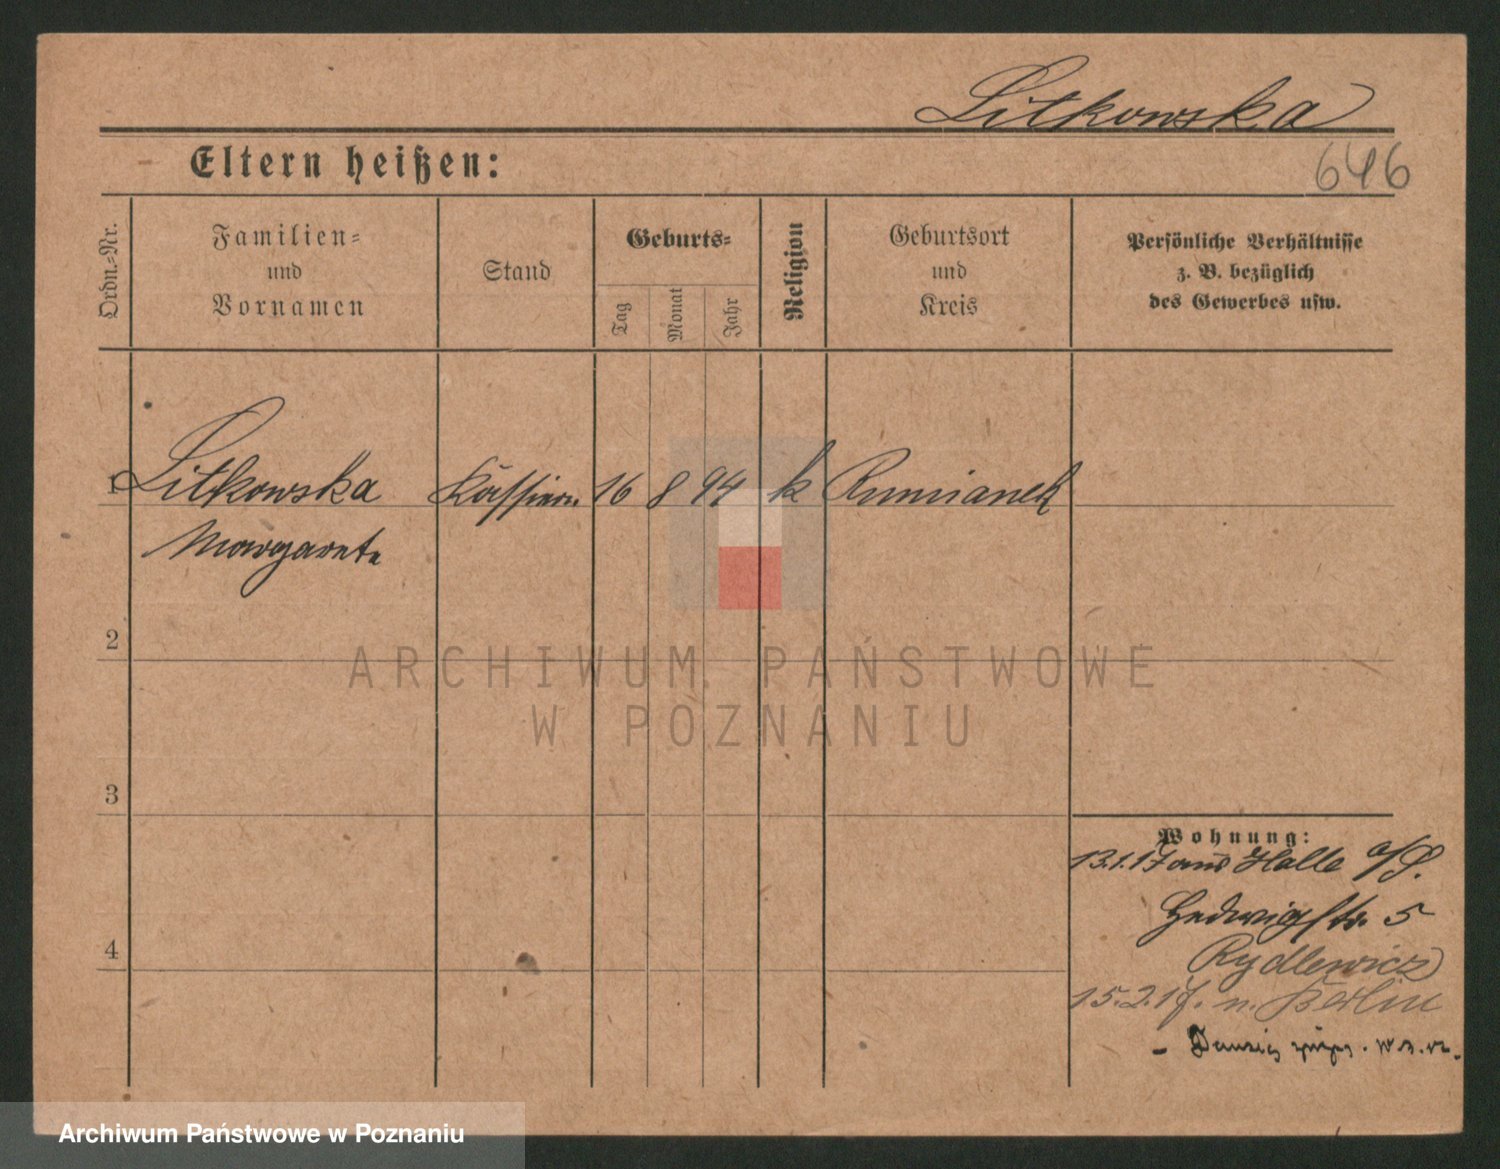 Litkowska
Eltern heißen:
646
Ordn.-Nr.
Familien-
und
Vornamen
Stand
Geburts-
Tag
Monat
Jahr
Religion
Geburtsort
und
Kreis
Persönliche Verhältnisse
z. B. bezüglich
des Gewerbes usw.
1 Litkowska Kassiern. 16 8 94 k Rumianek
Margarete
2
3
4
Wohnung:
13.1.17 aus Halle a/S.
Hedwigstr. 5
Rydlewicz
15.2.17. n. Berlin
- Danzig
ARCHIWUM PAŃSTWOWE
W POZNANIU
Archiwum Państwowe w Poznaniu